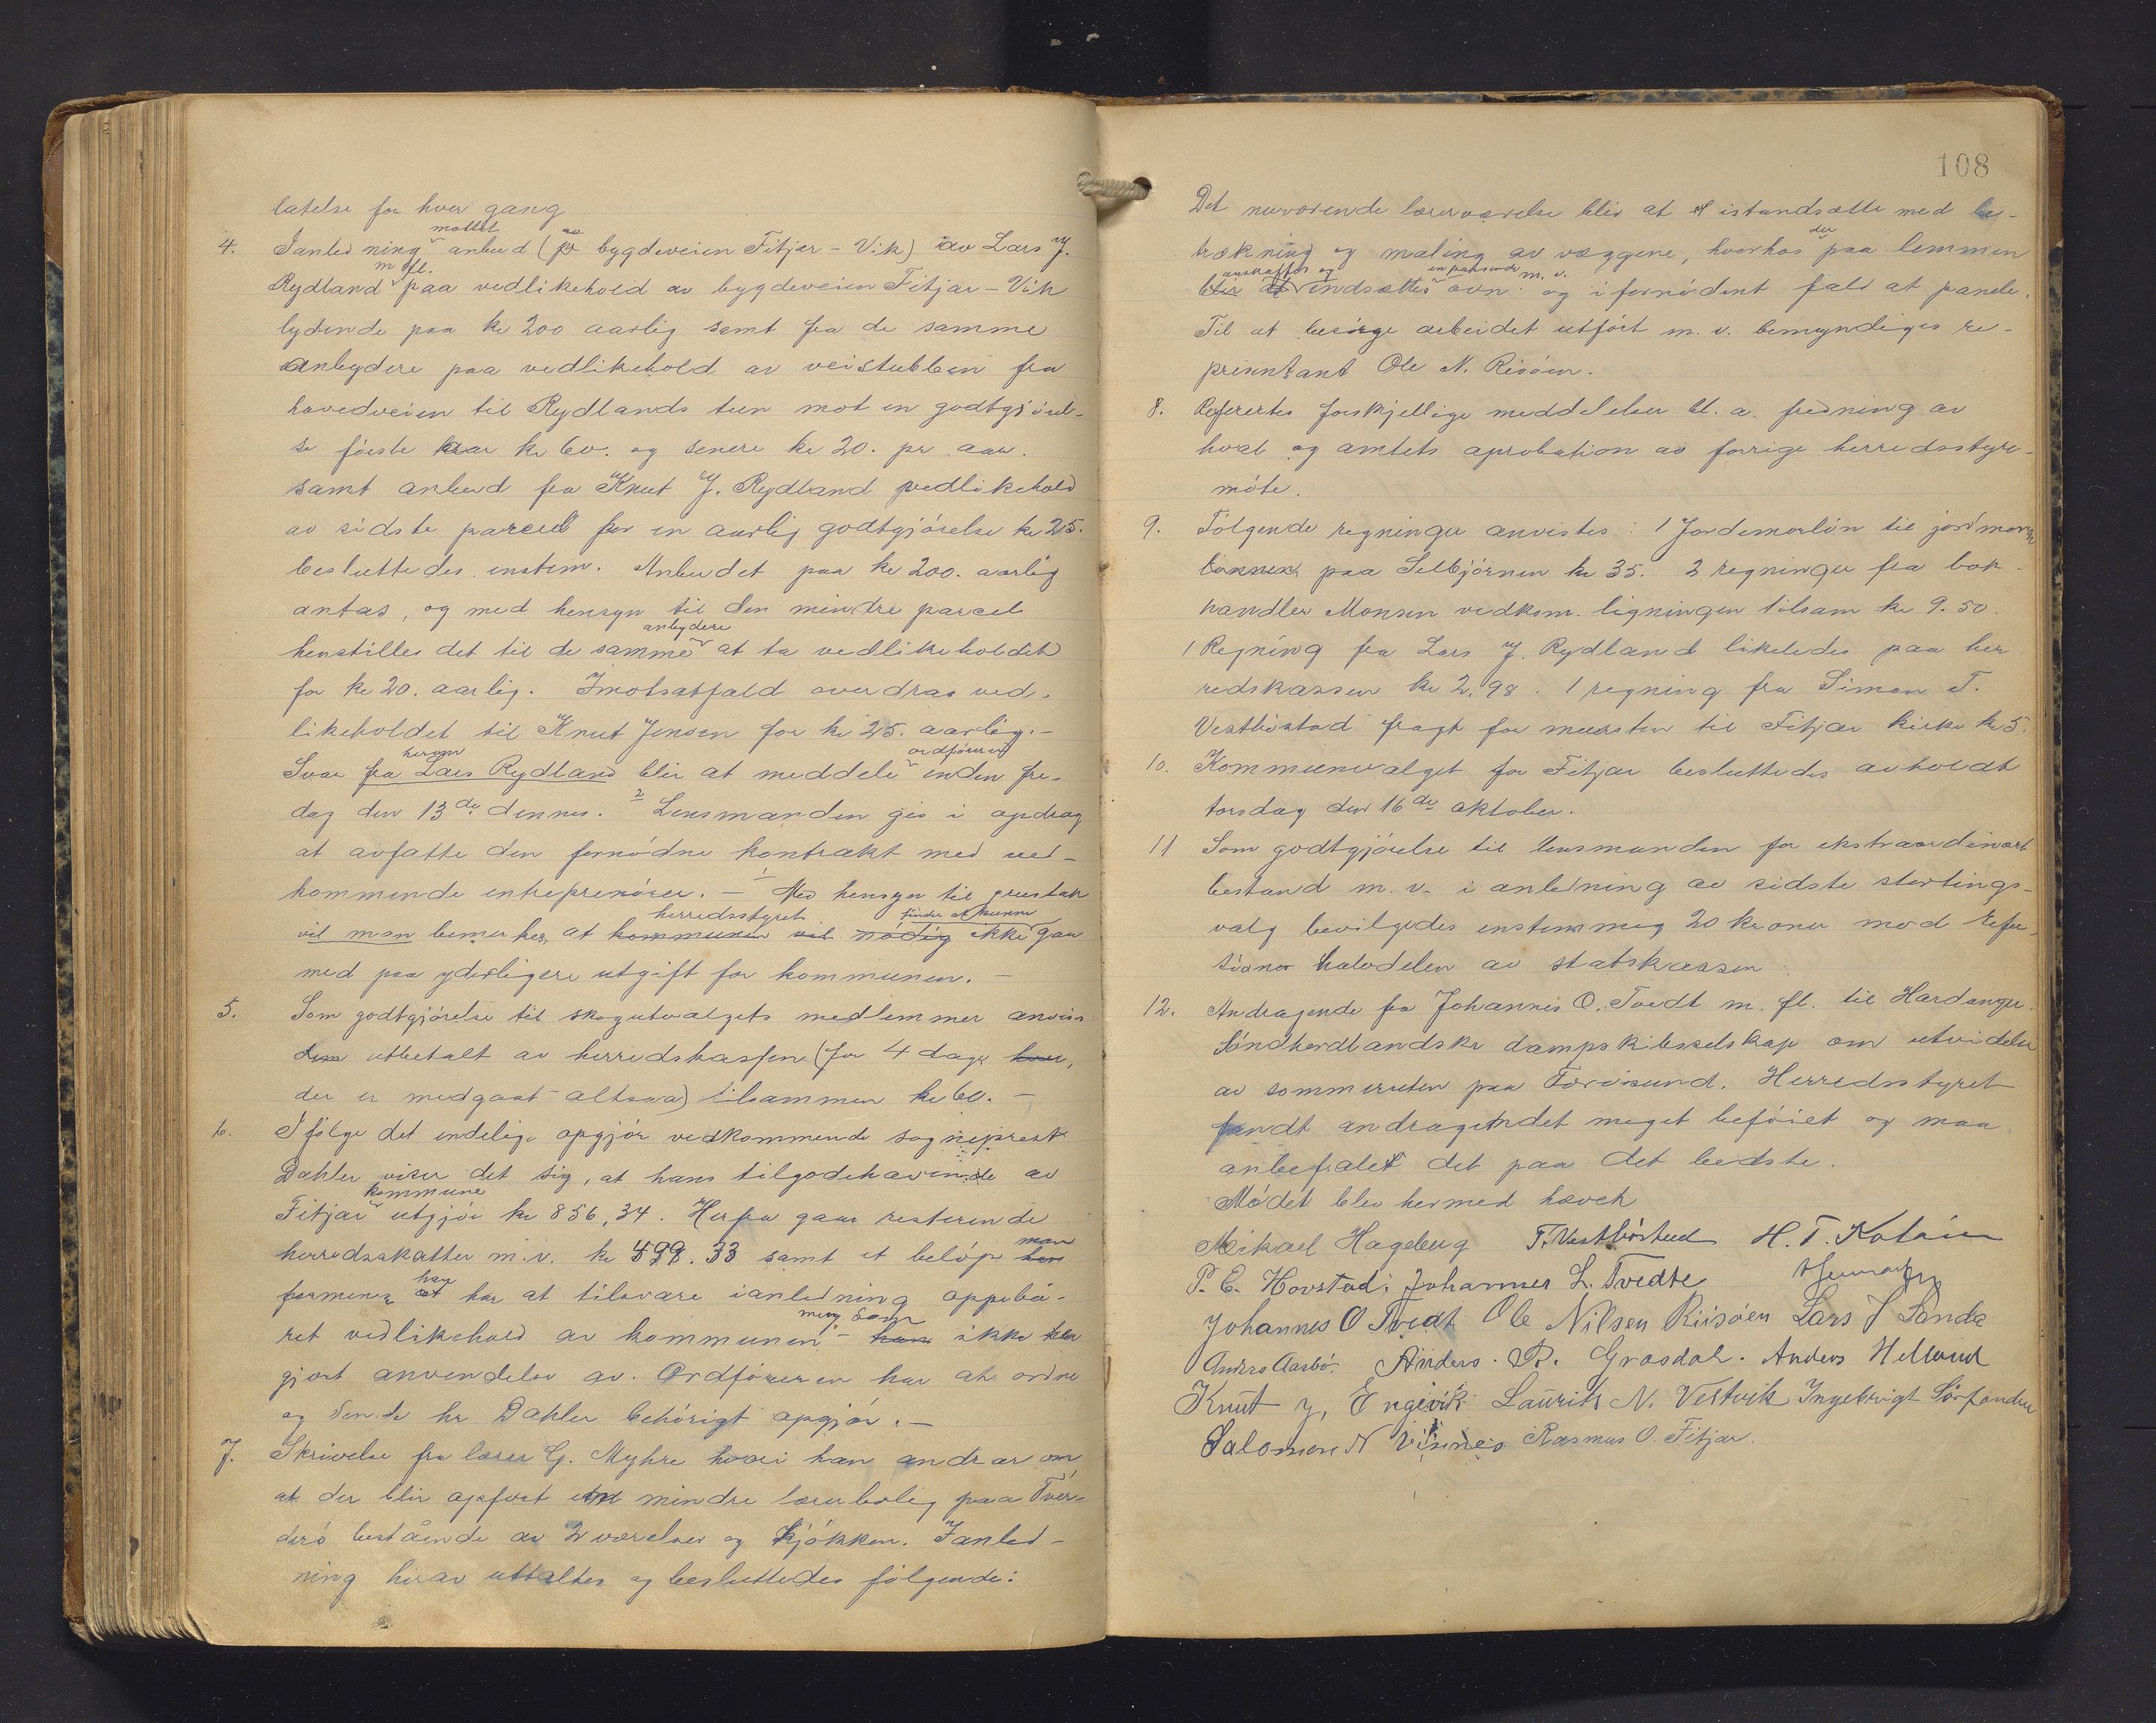 latelse for hver gang
4. Ianledning mottat anbud (av bygdeveien Fitjar - Vik) av Lars J.
Rydland m fl. paa vedlikehold av bygdeveien Fitjar - Vik
lydende paa kr 200 aarlig samt fra de samme
anbydere paa vedlikehold av veistubben fra
hovedveien til Rydlands tun mot en godtgjörel-
se förste aar kr 60. og senere kr 20. pr aar.
samt anbud fra Knut J. Rydland vedlikehold
av sidste parcel for en aarlig godtgjörelse kr 25.
besluttedes enstem. Anbudet paa kr 200. aarlig
antas, og med hensyn til den mindre parcel
henstilles det til de samme anbydere at ta vedlikeholdet
for kr 20. aarlig. Imotsatfald overdras ved-
likeholdet til Knut Jensen for kr 25. aarlig.-
Svar herom fra Lars Rydland blir at meddele ordföreren inden fre-
dag den 13de dennes. 2 Lensmanden gis i opdrag
at avfatte den fornødne kontrakt med ved-
kommende entreprenörer. - 1 Med hensyn til grustak
vil man bemerkes, at herredsstyret kommunen vil nödig finder at kunne ikke gaa
med paa yderligere utgift for kommunen. -
5. Som godtgjörelse til skogutvalgets medlemmer anvises
utbetalt av herredskassen (for 4 dage
der er medgaat altsaa) tilsammen kr 60. -
6. Ifølge det endelige opgjör vedkommende sogneprest
Dahler viser det sig, at hans tilgodehavende av
Fitjar kommune utgjör kr 856,34. Herfra gaar resterende
herredsskatter m.v. kr 499.33 samt et belöp man
formener han har at tilsvare ianledning oppebå-
ret vedlikehold av kommunen - men som ikke er
gjort anvendelse av. Ordföreren har at ordne
og sende hr Dahler behörigt opgjör. -
7. Skrivelse fra lærer G. Myhre hvori han andrar om
at der blir opfört en mindre lærerbolig paa Tver-
derö bestående av 2 værelser og kjökken. Ianled-
ning herav uttaltes og besluttedes følgende:
108
Det nuværende lærerværelse blir at istandsætte med be-
trækning og maling av væggene, hvorhos der paa lemmen
blir at anskaffes og indsættes en passende ovn m. v. og i fornödent fald at panele.
Til at besörge arbeidet utfört m. v. bemyndiges re-
presentant Ole N. Risöen.
8. Refereres forskjellige meddelelser bl. a. fredning av
hval og amtets aprobation av forrige herredsstyre-
möte.
9. Følgende regninger anvistes: 1 Jordemorlön til jordmoren
paa Selbjörnen kr 35. 2 regninger fra bok-
handler Monsen vedkom. ligningen tilsam kr 9.50.
1 Regning fra Lars J. Rydland likeledes paa her
redskassen kr 2,98. 1 regning fra Simon T.
Vestböstad fragt for mursten til Fitjar kirke kr 5.
10. Kommunevalget for Fitjar besluttedes avholdt
torsdag den 16de oktober.
11 Som godtgjörelse til lensmanden for ekstraordinært
bestand m. v. i anledning av sidste stortings-
valg bevilgedes enstemmig 20 kroner mod refu-
sion halvdelen av statskassen
12. Andragende fra Johannes O. Tvedt m. fl. til Hardanger
Söndhordlandske dampskibsselskap om utvidelse
av sommerruten paa Toröisund. Herredsstyret
fandt andragendet meget beföiet og maa
anbefale det paa det bedste.
Mödet blev hermed hævet
Mikael Hageberg T. Vestböstad H. T. Koløen
P. E. Hovstad. Johannes L. Tvedte
Johannes O Tvedt Ole Nilsen Riisöen Lars J Sandø
Anders Aasbö. Anders. R. Grosdal. Anders Helland
Knut J, Engevik Laurits N. Vestvik Ingebrigt Sörfonden
Salomon N Visnes Rasmus O. Fitjar.